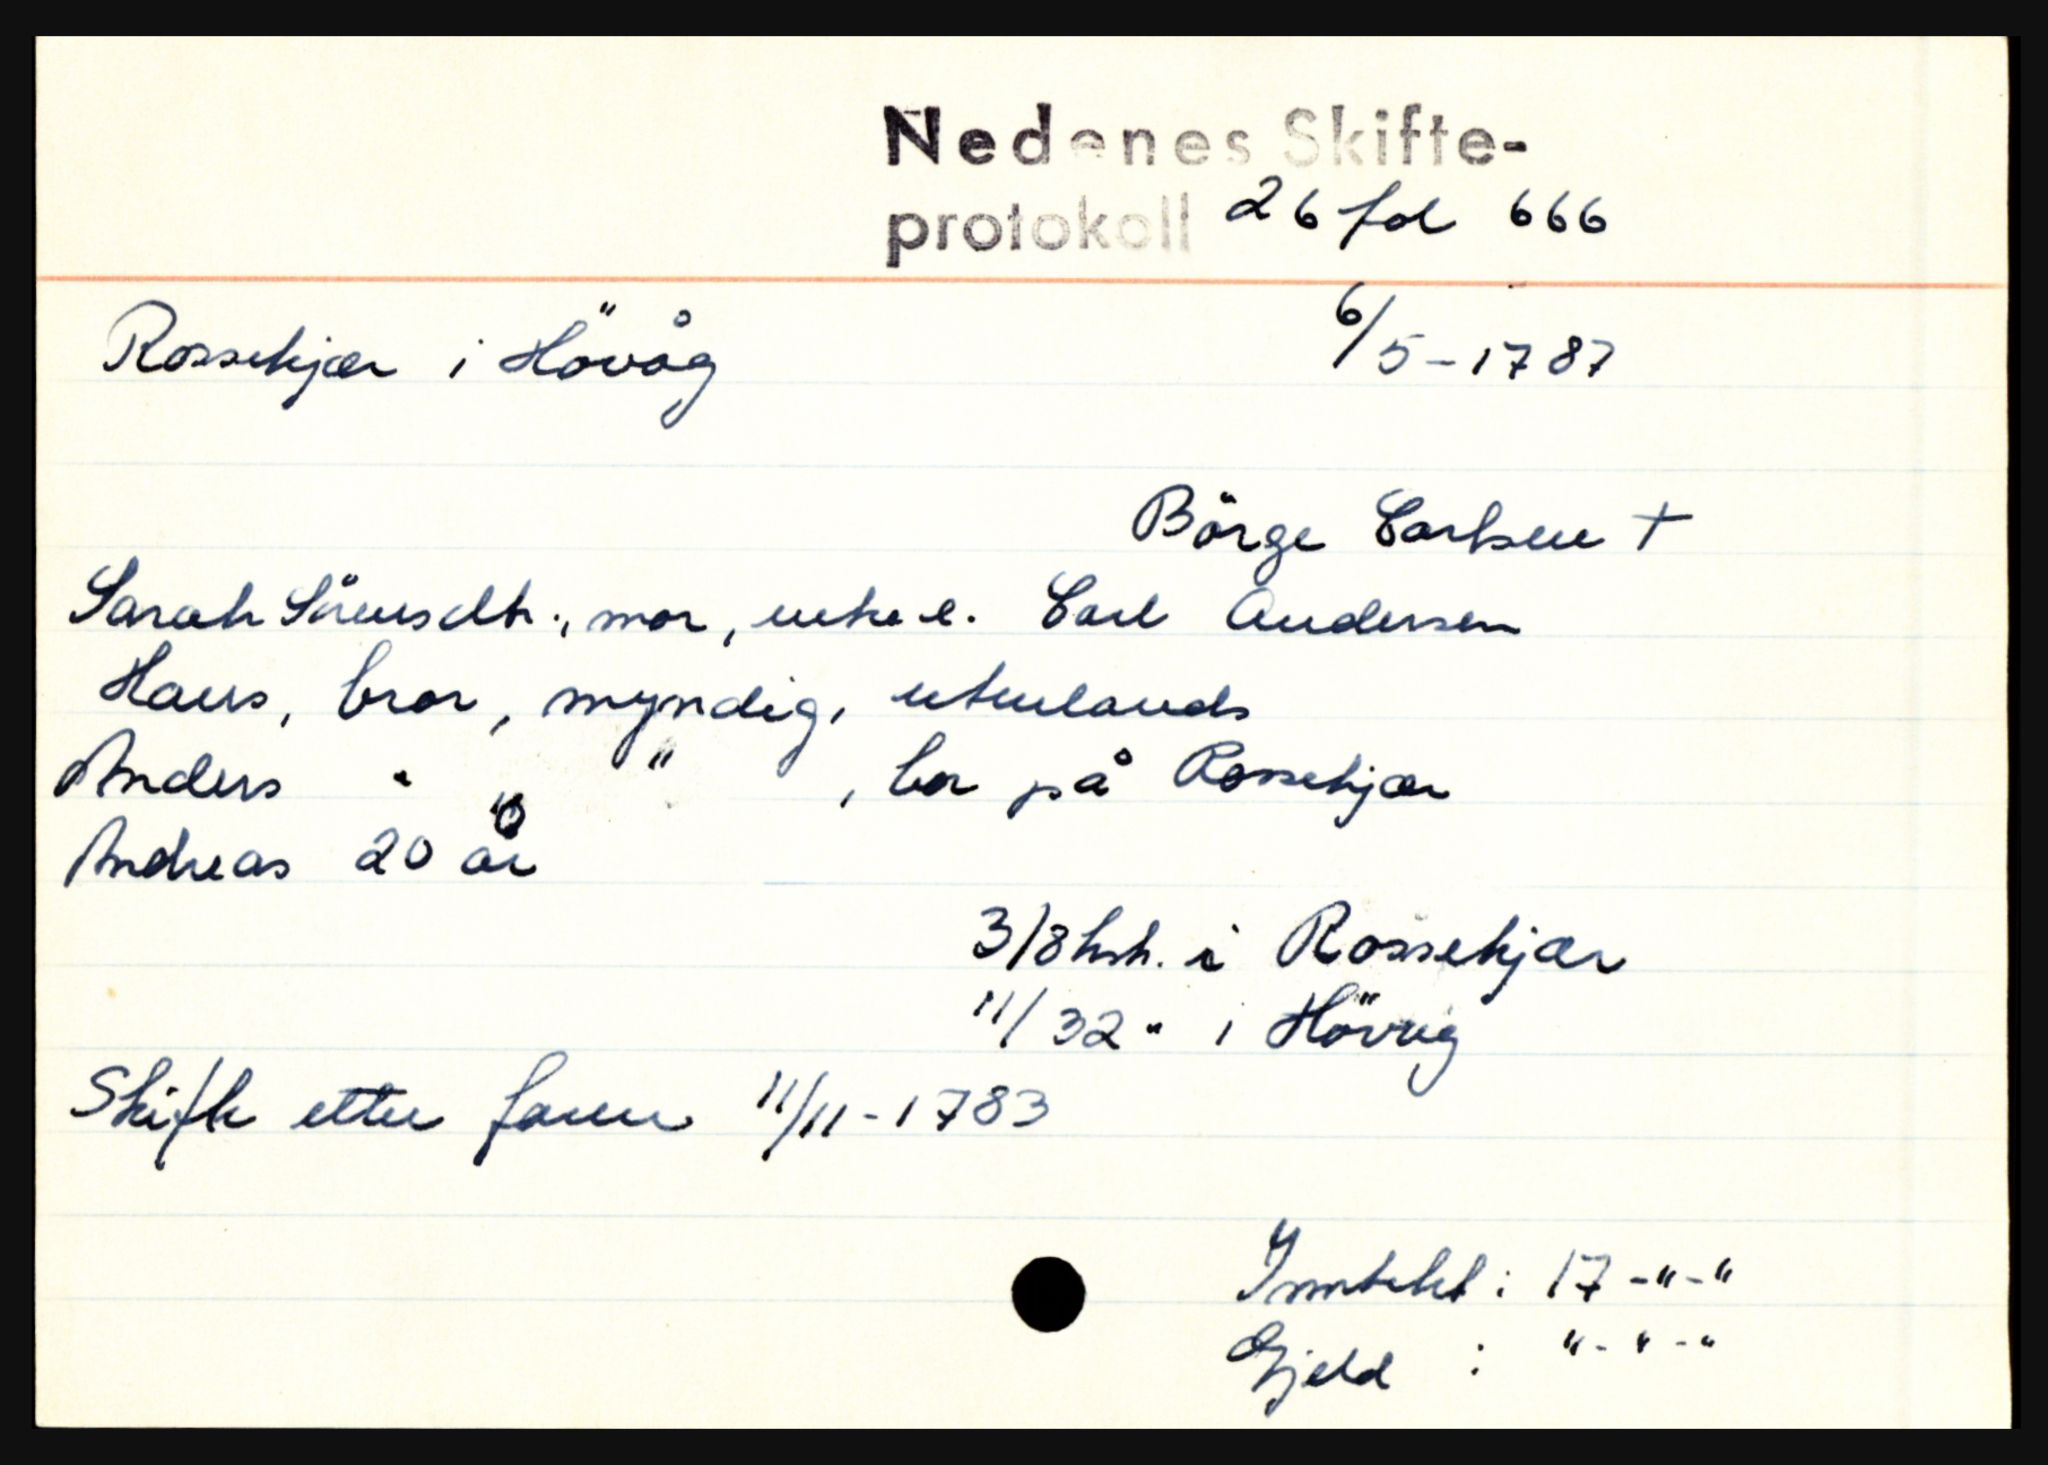 Nedenes Skifte-
protokoll 26 fol 666
Rossekjær i Hövåg 6/5-1787
Börge Carlsen +
Sarah Sörensdtr., mor, enke e. Carl Andersen
Hans, bror, myndig, utenlands
Anders " " , bor på Rossekjær
Andreas " 20 år
3/8 hsh. i Rossekjær
11/32 " i Hövåg
Skifte etter faren 11/11-1783
Inntekt : 17-"-"
Gjeld : "-"-"